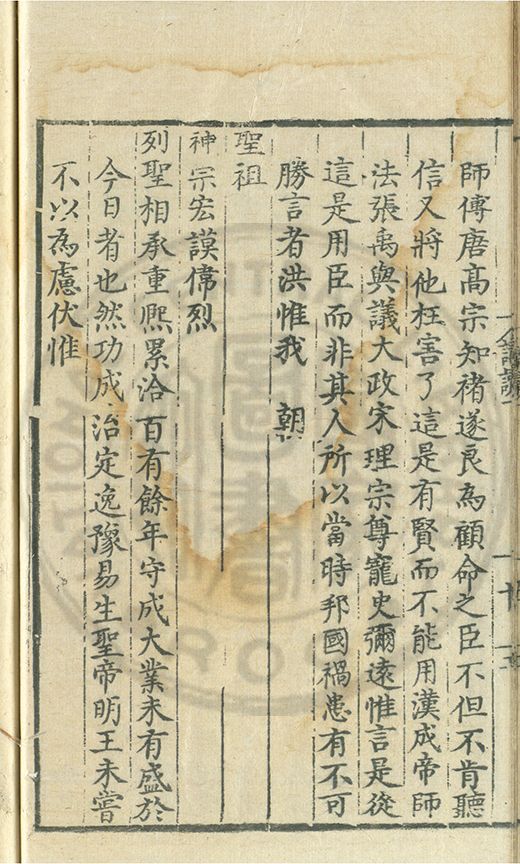 師傅唐高宗知褚遂良為顧命之臣不但不肯聽
信又將他枉害了這是有賢而不能用漢成帝師
法張禹與議大政宋理宗尊寵史彌遠惟言是從
這是用臣而非其人所以當時邦國禍患有不可
勝言者洪惟我 朝
聖祖
神宗宏謨偉烈
列聖相承重熙累洽百有餘年守成大業未有盛於
今日者也然功成治定逸豫易生聖帝明王未嘗
不以為慮伏惟